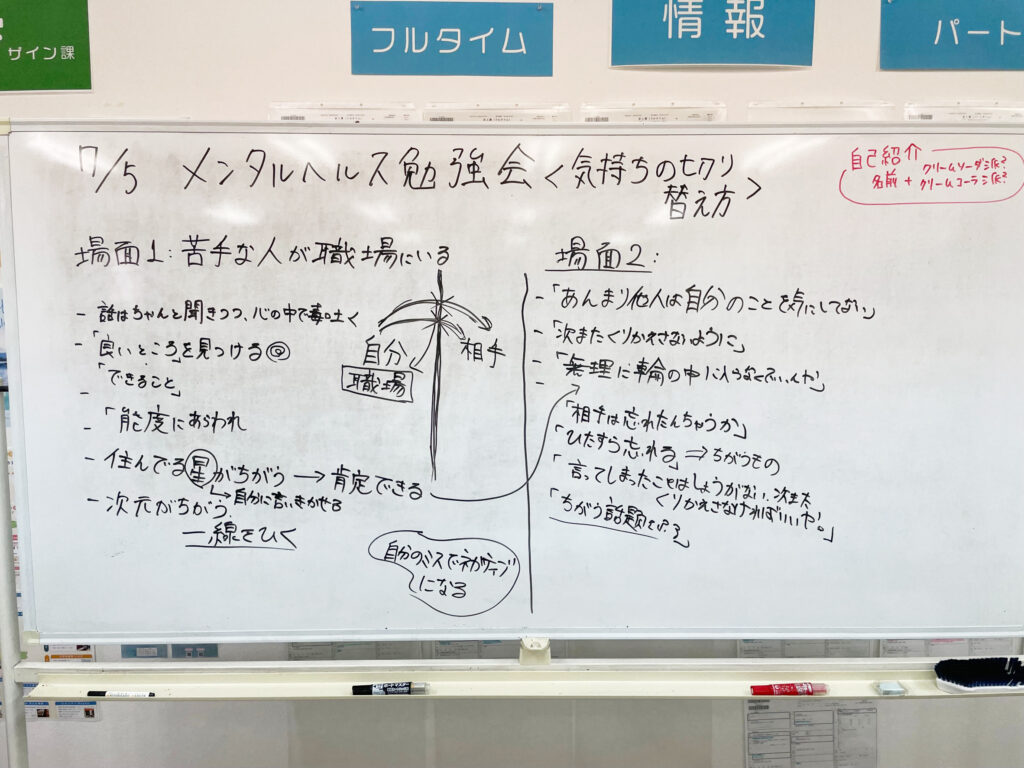 サイン課
フルタイム
情報
パート
7/5 メンタルヘルス勉強会<気持ちの切り
替え方>
自己紹介
クリームソーダ派?
名前 + クリームコーラ派?
場面1:苦手な人が職場にいる
- 話はちゃんと聞きつつ、心の中で毒吐く
- 「良いところ」を見つける◎
- 「できること」
- 「態度にあらわれ
- 住んでる星がちがう → 肯定できる
↳自分に言いきかせる
- 次元がちがう
一線をひく
自分
相手
職場
自分のミスでネガティブ
になる
場面2:
- 「あんまり他人は自分のことを気にしてない」
- 「次またくりかえさないように」
- 「無理に輪の中に入らなくていいんや」
-
「相手は忘れたんちゃうか」
「ひたすら忘れる」⇒ちがうもの
「言ってしまったことはしょうがない、次また
くりかえさなければいいや。」
「ちがう話題を